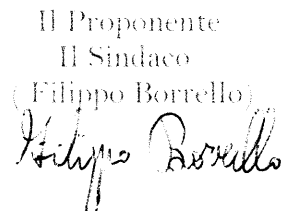 Il Proponente
Il Sindaco
( Filippo Borrello)
Filippo Borrello